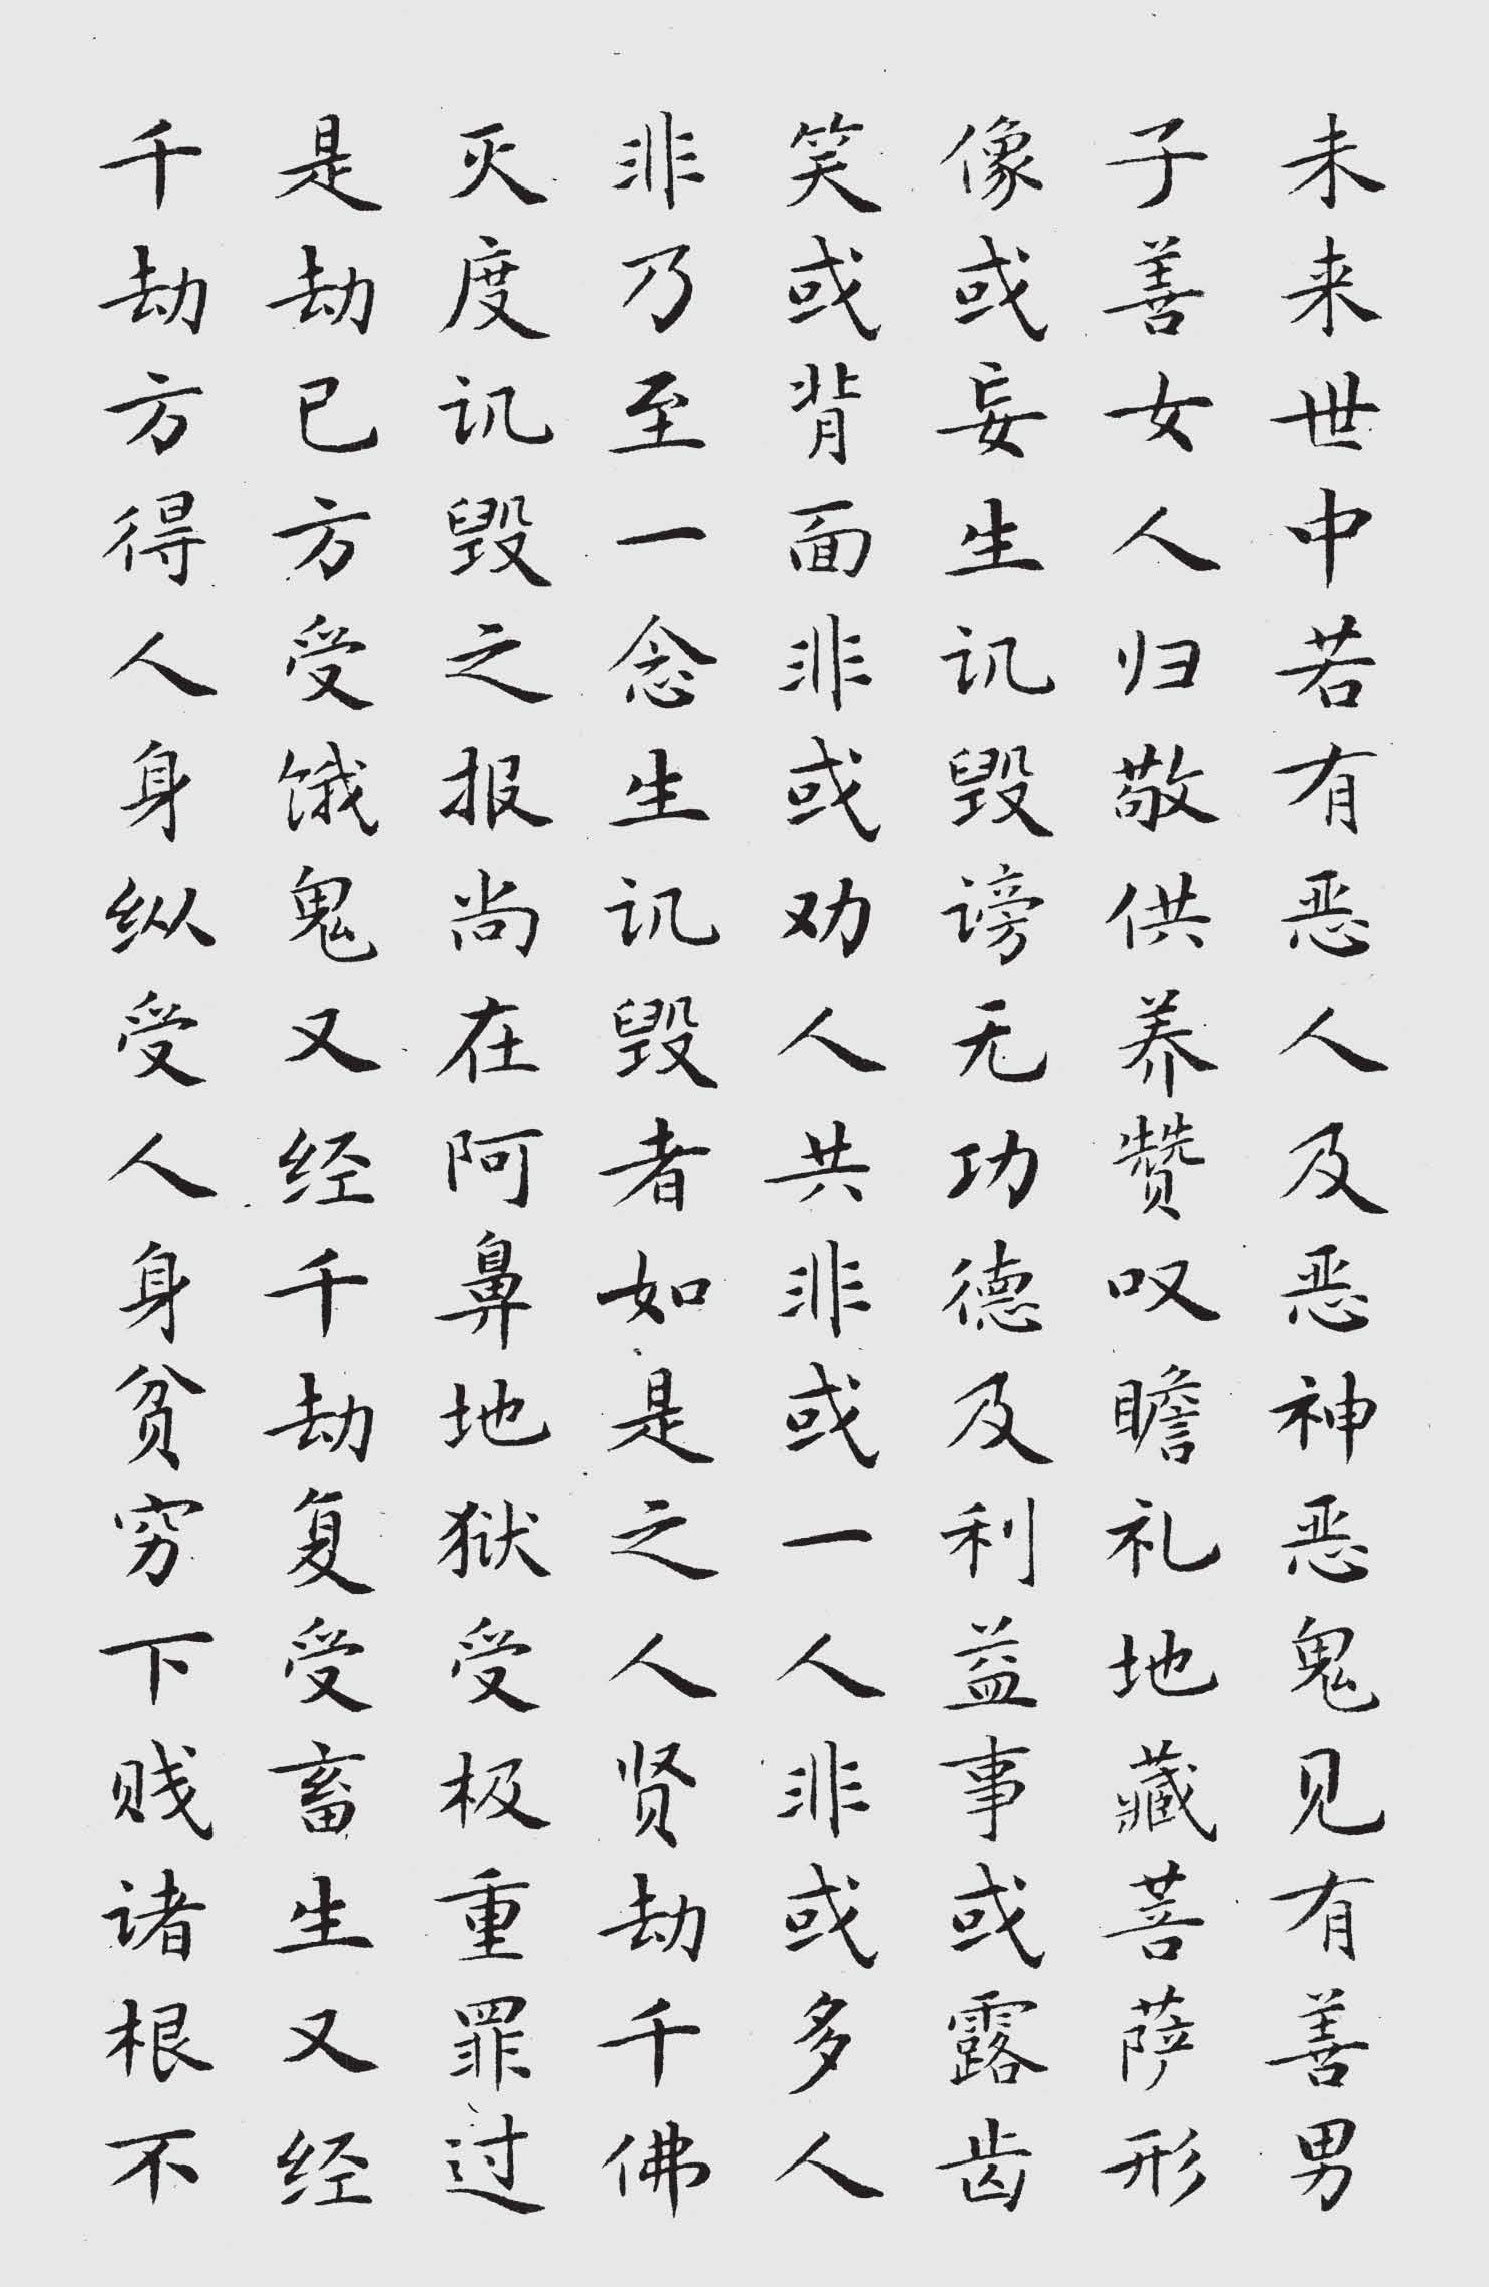 未来世中若有恶人及恶神恶鬼见有善男
子善女人归敬供养赞叹瞻礼地藏菩萨形
像或妄生讥毁谤无功德及利益事或露齿
笑或背面非或劝人共非或一人非或多人
非乃至一念生讥毁者如是之人贤劫千佛
灭度讥毁之报尚在阿鼻地狱受极重罪过
是劫已方受饿鬼又经千劫复受畜生又经
千劫方得人身纵受人身贫穷下贱诸根不